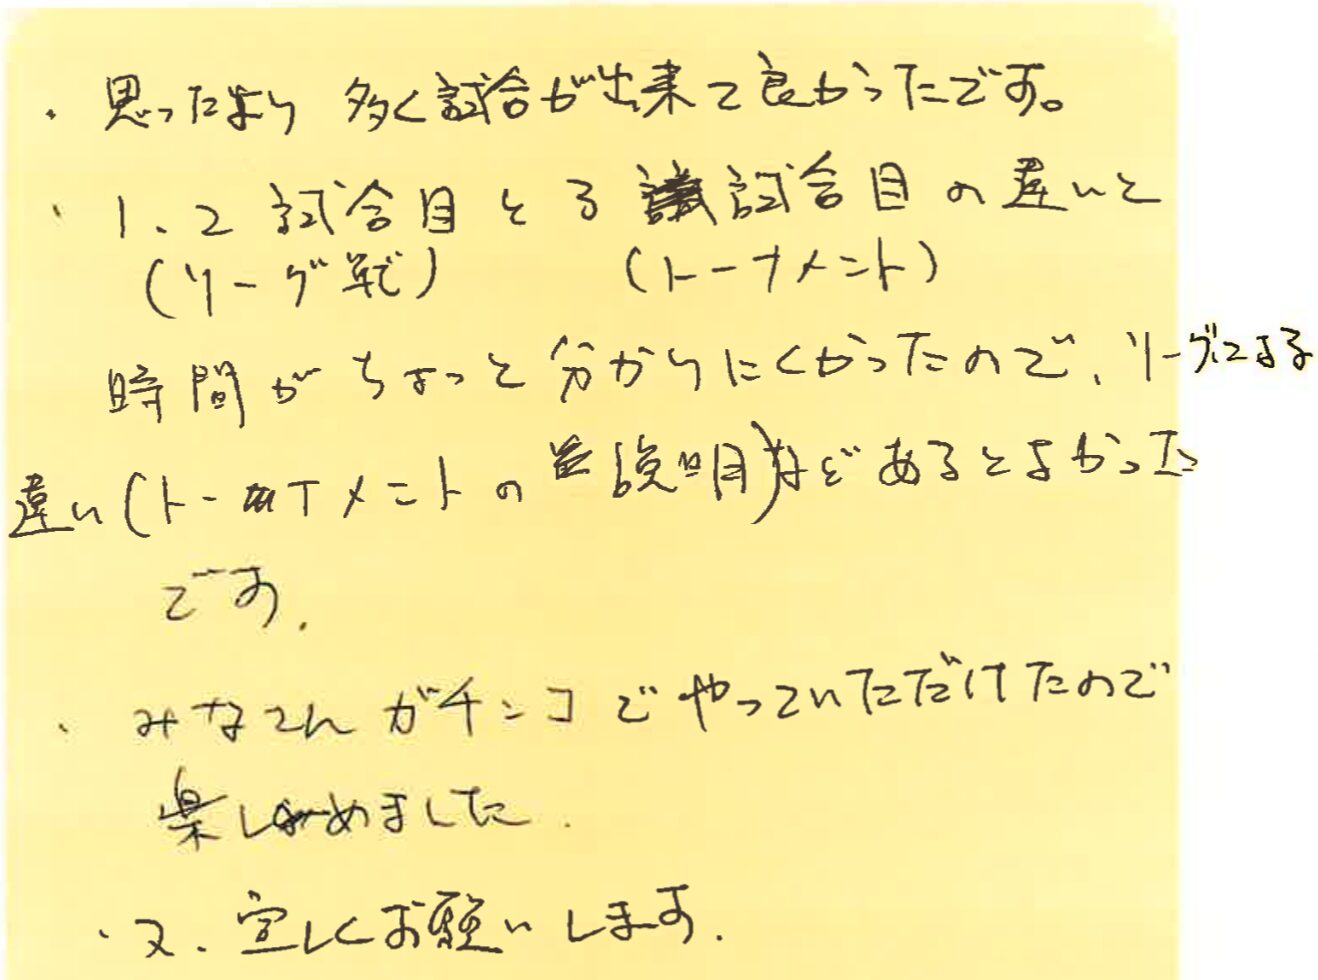 ・思ったより 多く試合が出来て良かったです。
・1、2試合目と3試合目の違いと
(リーグ戦) (トーナメント)
時間がちょっと分かりにくかったので、リーグによる
違い(トーナメントの説明)などあるとよかった
です.
・みなさんガチンコでやっていただけたので
楽しめました.
・又、宜しくお願いします.